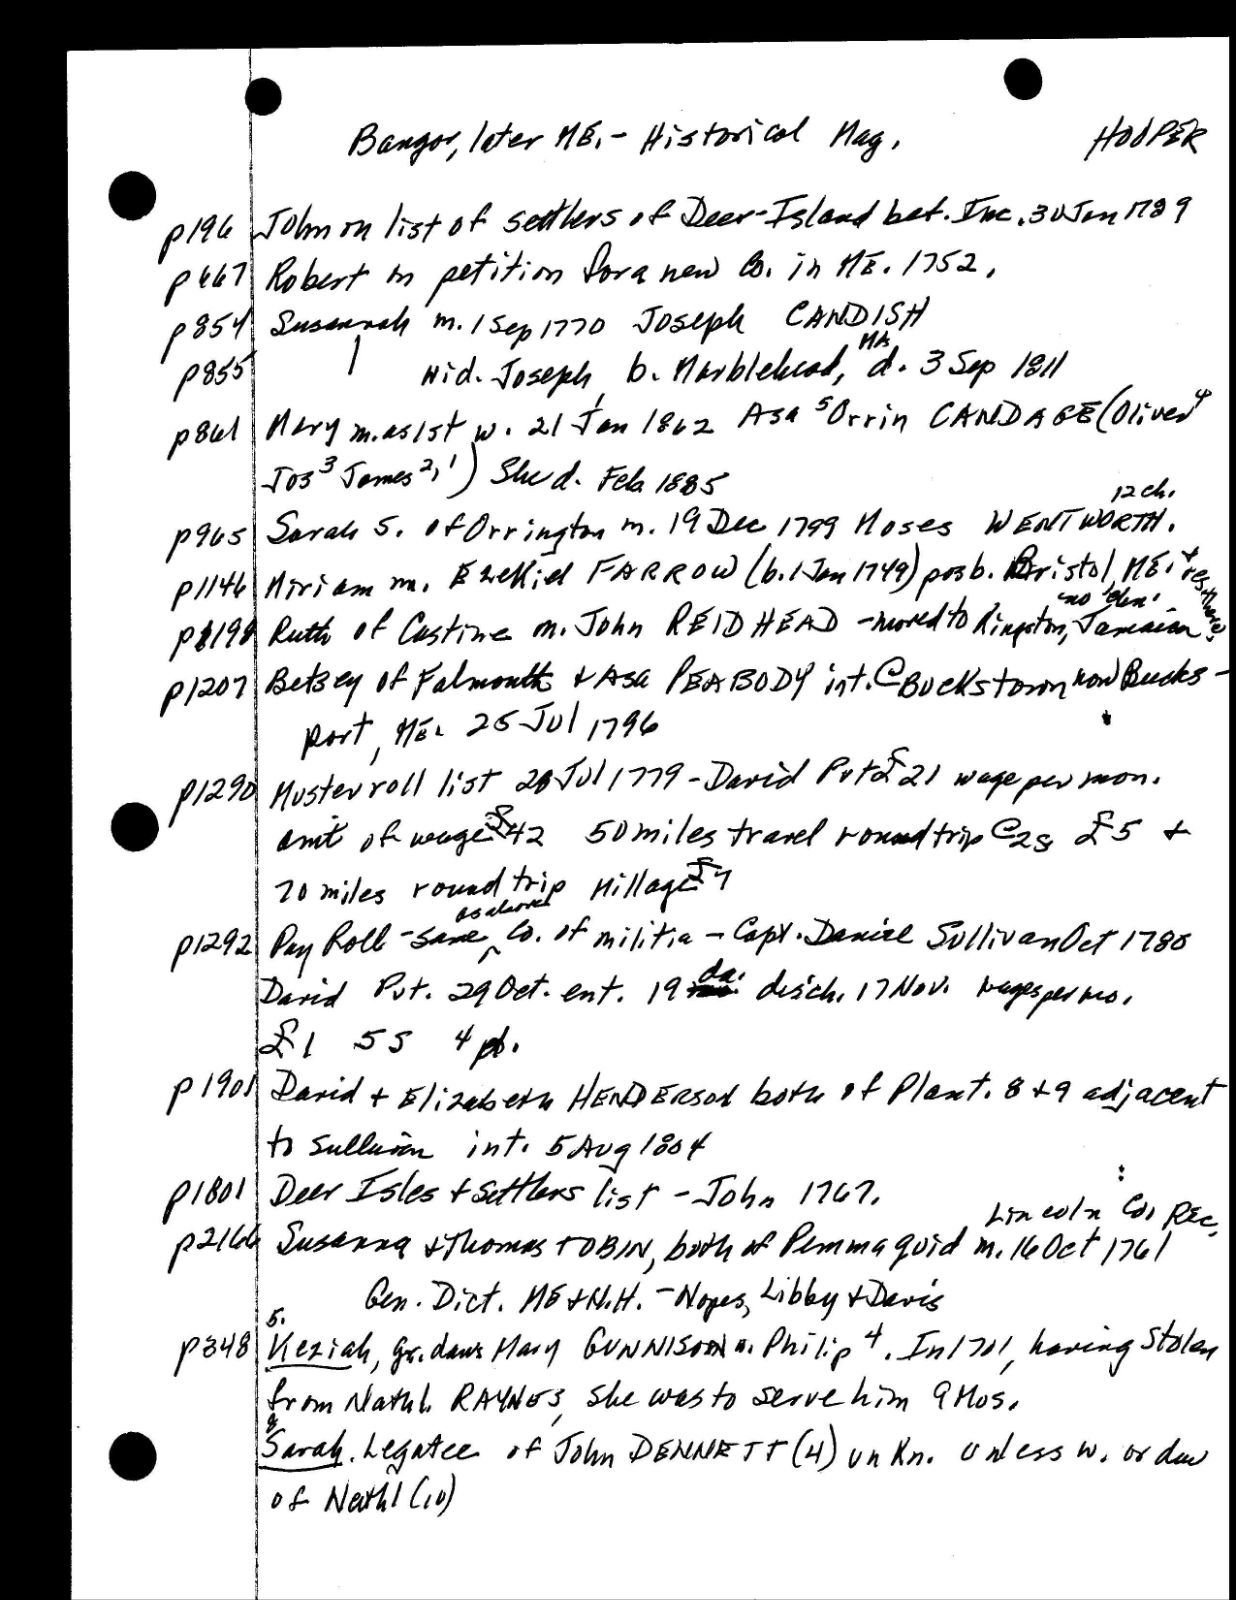 Bangor, later ME. - Historical Mag. HOOPER
p196 John on list of settlers of Deer-Island bef. Inc. 30 Jan 1789
p667 Robert on petition for a new Co. in ME. 1752.
p854 Susannah m. 1 Sep 1770 Joseph CANDISH
p855 Wid. Joseph, b. Marblehead, MA d. 3 Sep 1811
p861 Mary m. as 1st w. 21 Jan 1862 Asa ⁵Orrin CANDAGE (Oliver⁴
Jos³ James²,¹) She d. Feb 1885
p965 Sarah S. of Orrington m. 19 Dec 1799 Moses WENTWORTH. 12 ch.
p1146 Miriam m. Ezekiel FARROW (b. 1 Jan 1749) posb. Bristol, ME. + res. there.
p1198 Ruth of Castine m. John REIDHEAD - moved to Kingston, Jamaica no 'chn'.
p1207 Betsey of Falmouth + Asa PEABODY int. @ Buckstown now Bucks-
port, ME. 25 Jul 1796
p1290 Muster roll list 28 Jul 1779 - David Pvt £21 wage per mon.
amt of wage £42 50 miles travel round trip @ 2s £5 +
70 miles round trip Millage £7
p1292 Pay Roll - same as above Co. of militia - Capt. Daniel Sullivan Oct 1780
David Pvt. 29 Oct. ent. 19 da. disch. 17 Nov. wages per mo.
£1 5S 4 p.
p1901 David + Elizabeth HENDERSON both of Plant. 8 + 9 adjacent
to Sullivan int. 5 Aug 1804
p1801 Deer Isles + Settlers list - John 1767.
p2166 Susanna + Thomas TOBIN, both of Pemmaquid m. 16 Oct 1761 Lincoln Co. Rec.
Gen. Dict. ME + N.H. - Noyes, Libby + Davis
p348 5. Keziah, gr. dau Mary GUNNISON m. Philip⁴. In 1701, having stolen
from Nathl. RAYNES, she was to serve him 9 Mos.
8 Sarah. Legatee of John DENNETT (4) unkn. unless w. or dau
of Nathl (10)